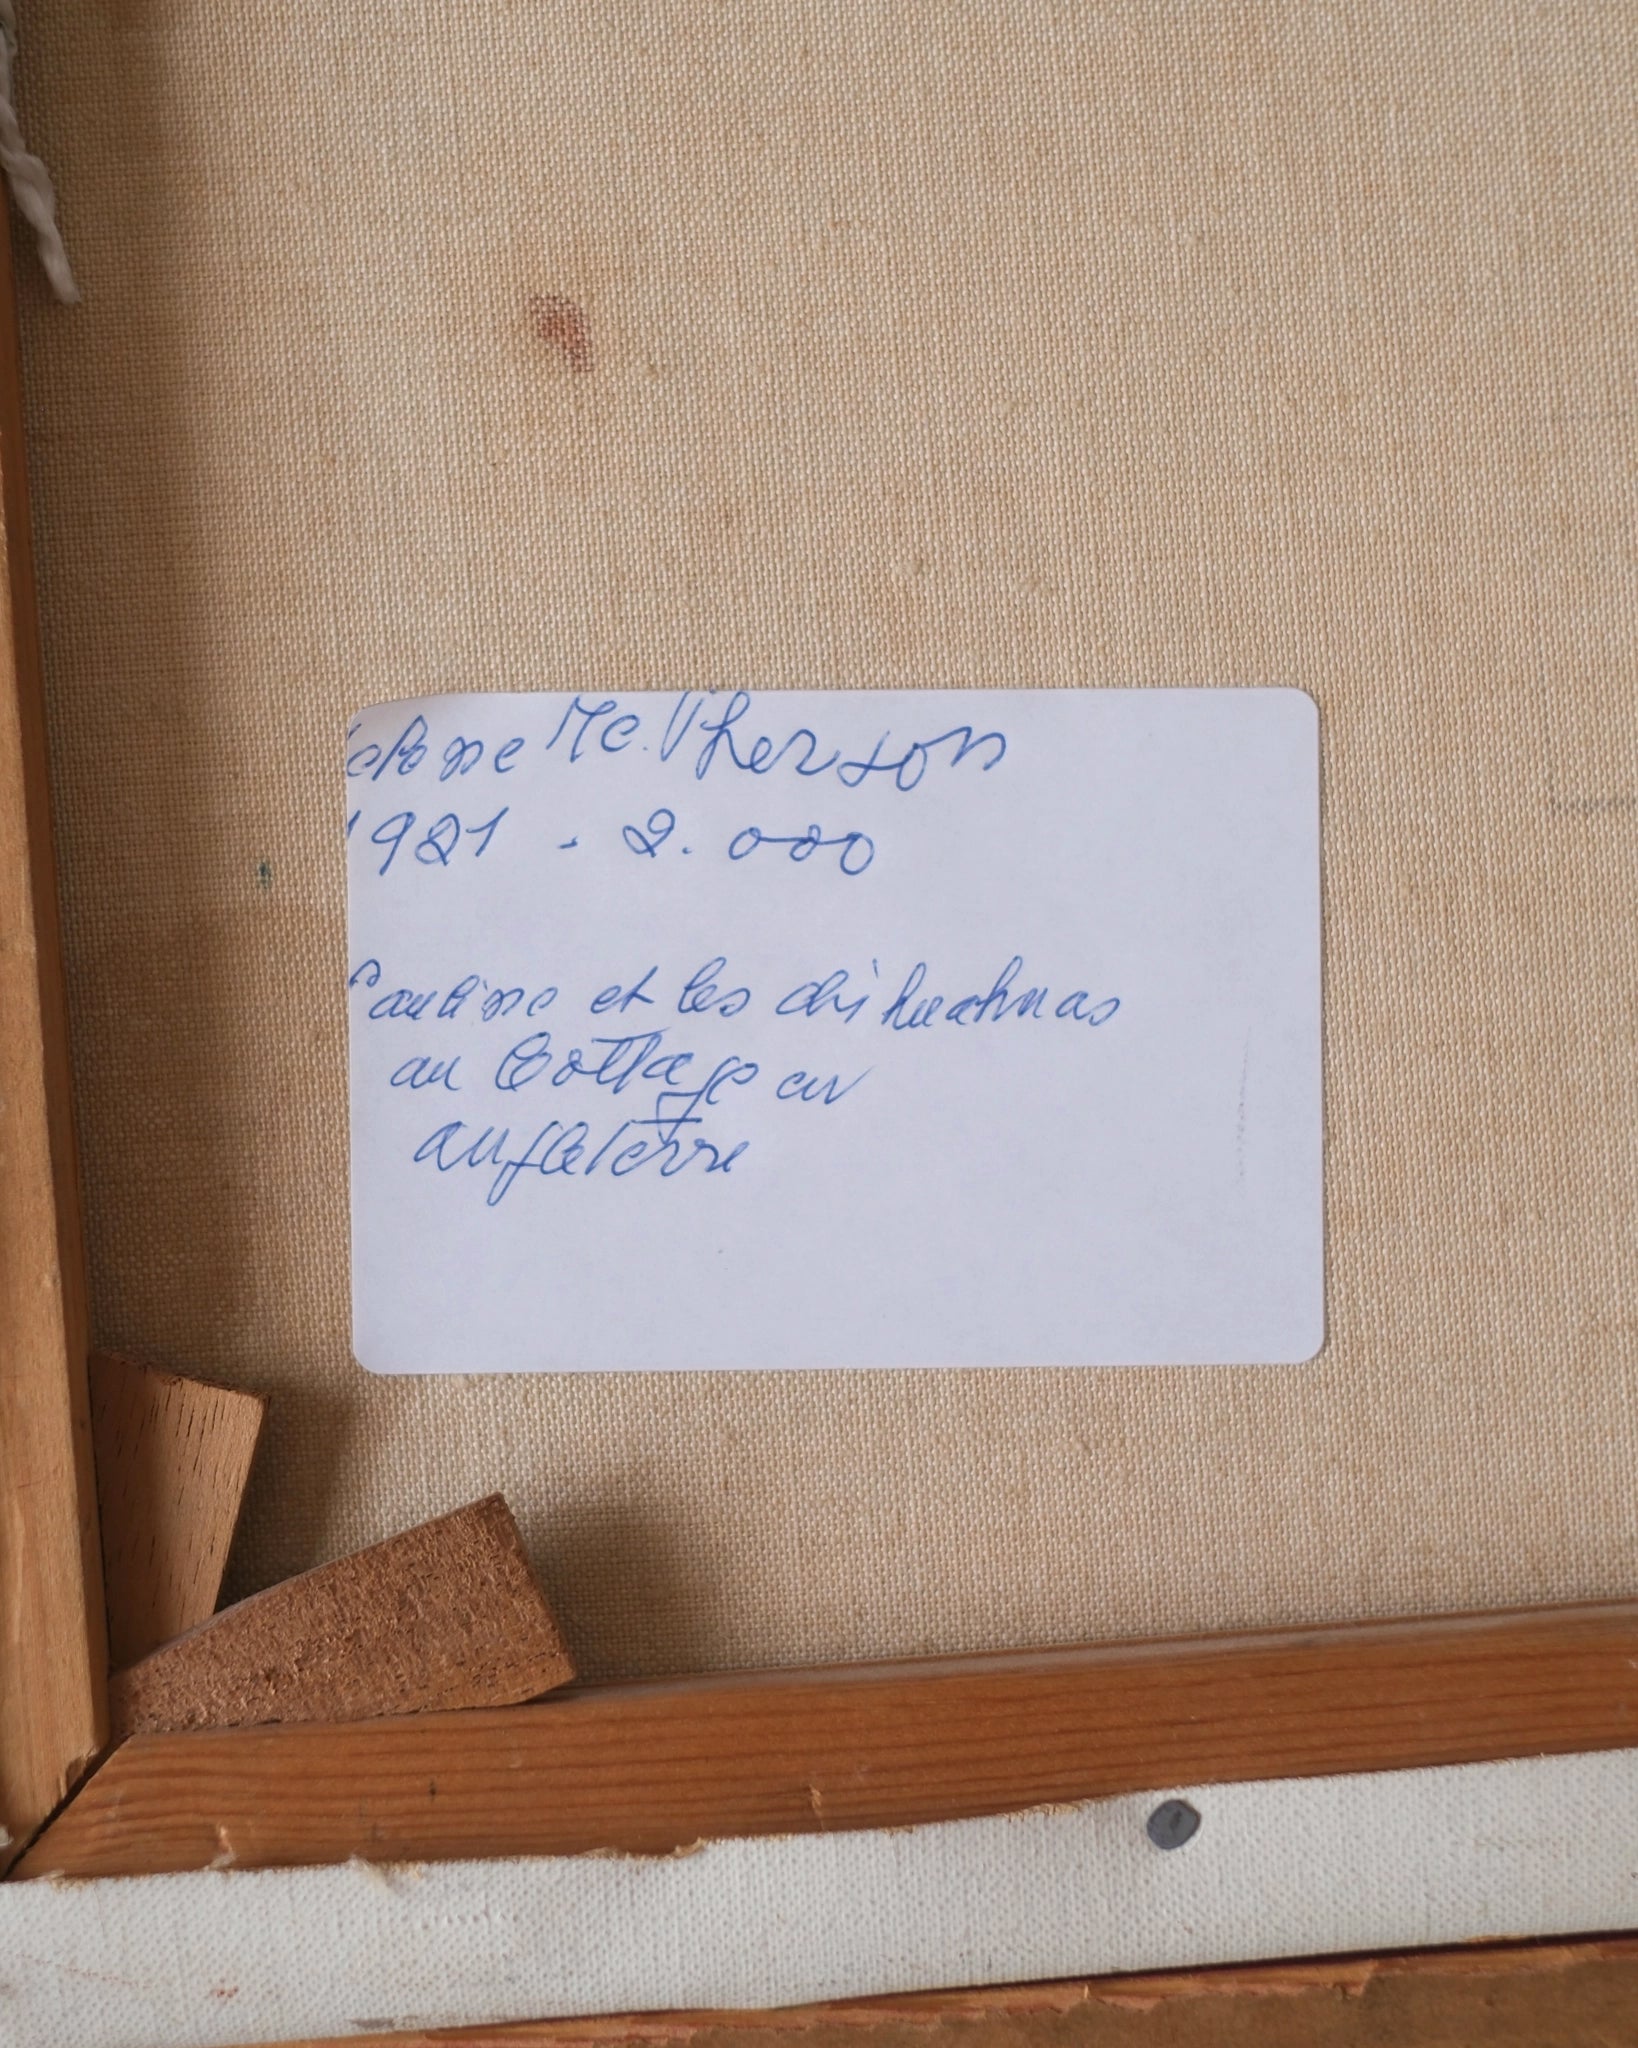 Mc. Pherson
1921 - 2.000
Pauline et les chihuahuas
au Cottage en
angleterre